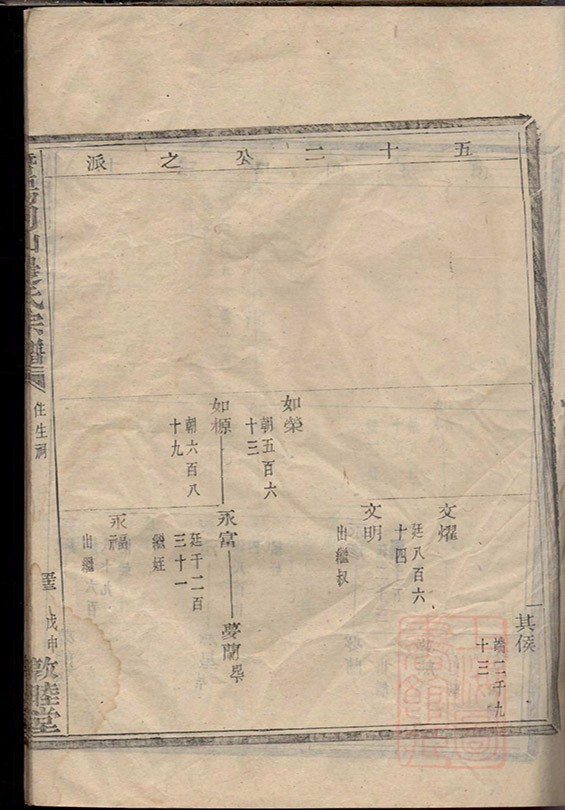 五十二公之派
其侯
端二千九
十三
文燿
廷八百六
十四
文明
出繼叔
如榮
朝五百六
十三
如榞
朝六百八
十九
永富
廷千二百
三十一
繼姪
夢蘭
永福
出繼
氏宗譜
住生祠
戊申
敦睦堂